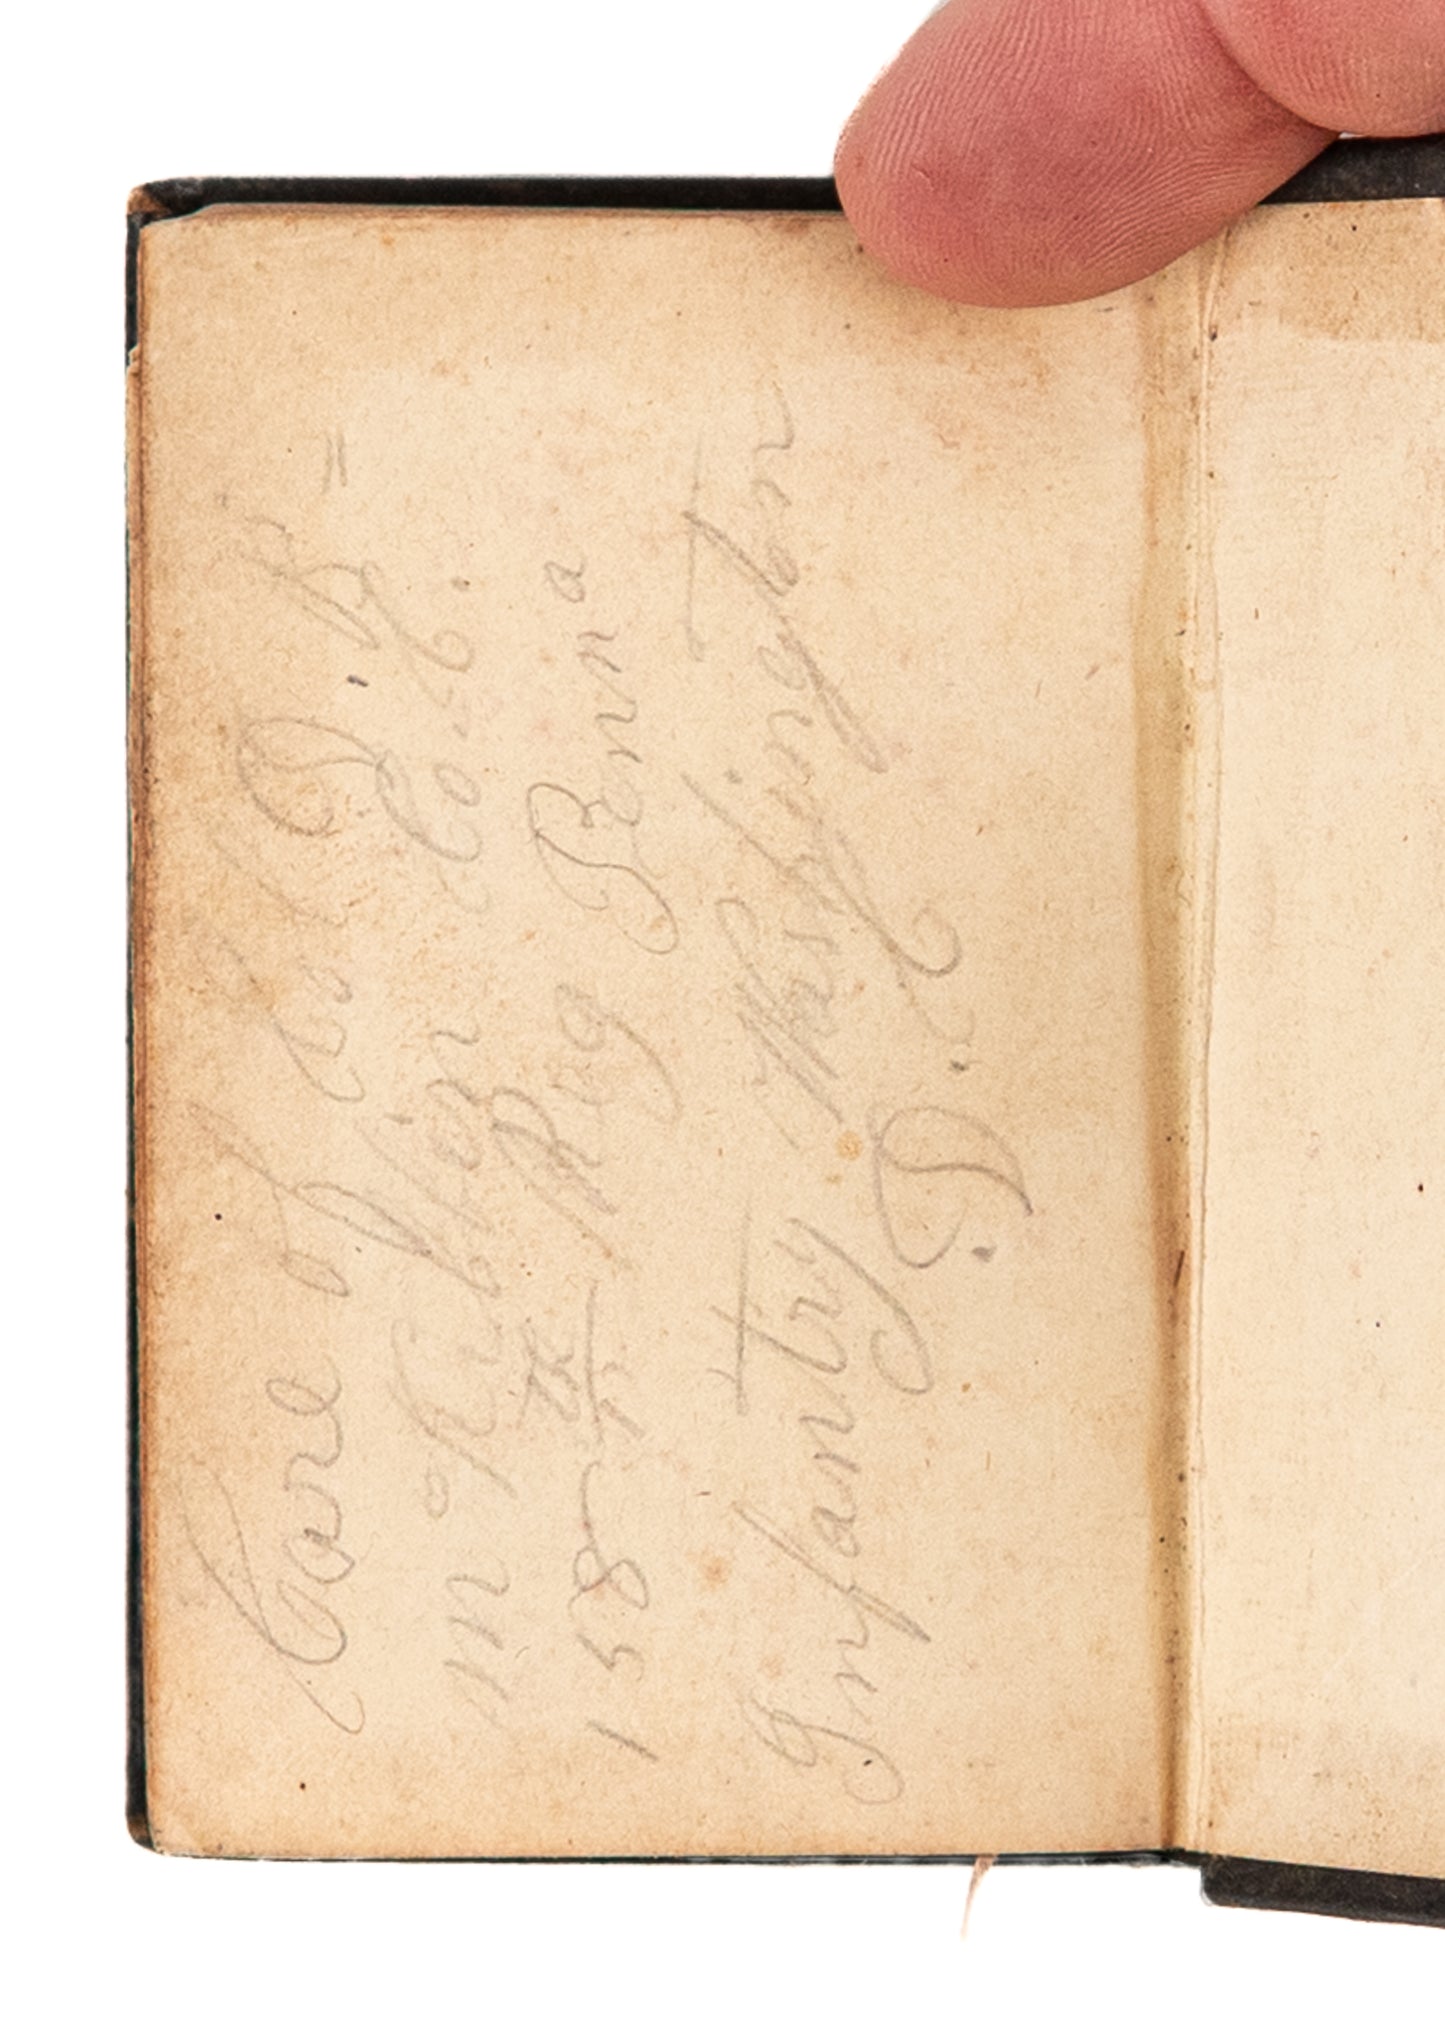 Care of Col D. B =
McKibbin Co. C.
158th Reg Penna
Infantry Washington
D. C